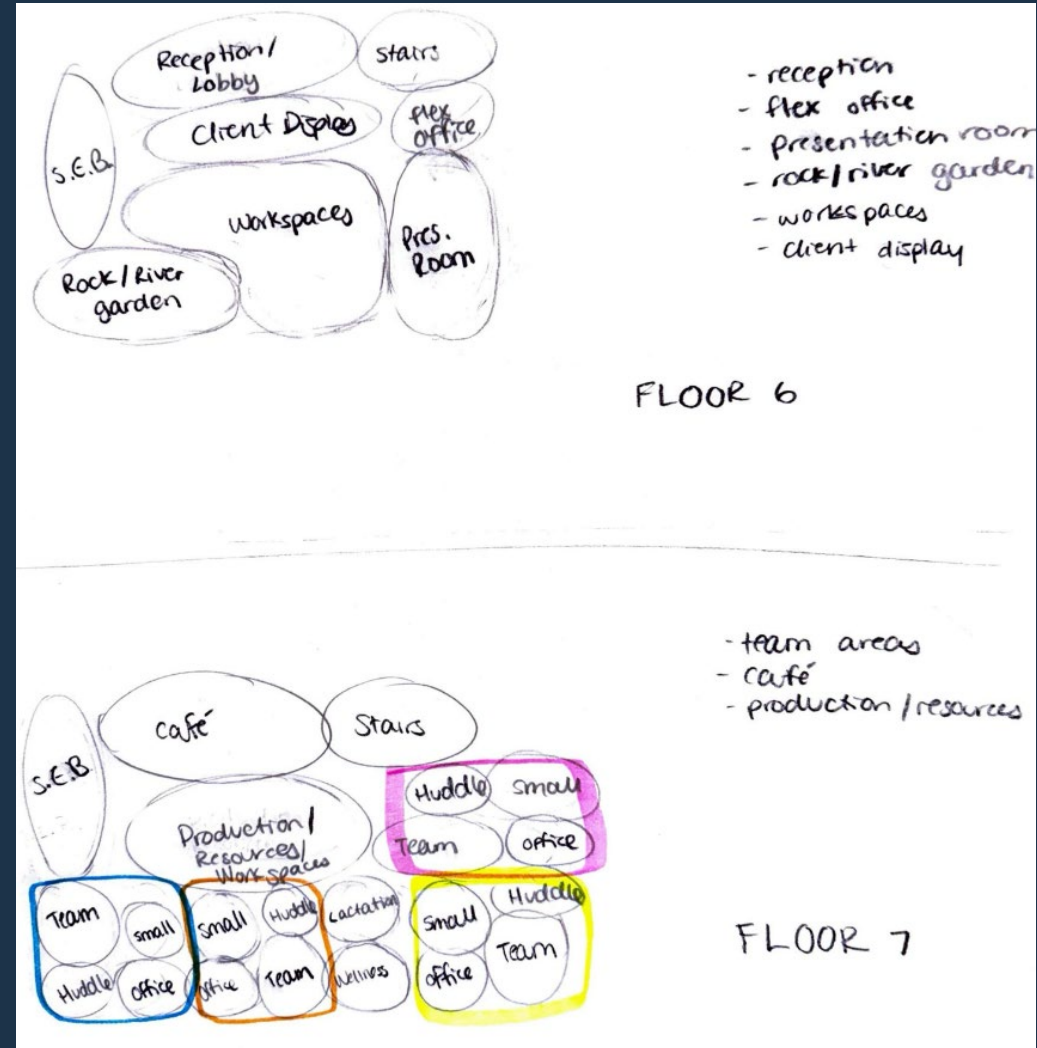 Reception/
Lobby
Stairs
S.E.B.
Client Display
flex
office
Workspaces
Pres.
Room
Rock/River
garden
- reception
- flex office
- presentation room
- rock/river garden
- workspaces
- client display
FLOOR 6
- team areas
- café
- production/resources
S.E.B.
café
Stairs
Production/
Resources/
Workspaces
Huddle
small
Team
office
Team
small
Huddle
office
small
Huddle
office
Team
Lactation
Wellness
small
Huddle
office
Team
FLOOR 7